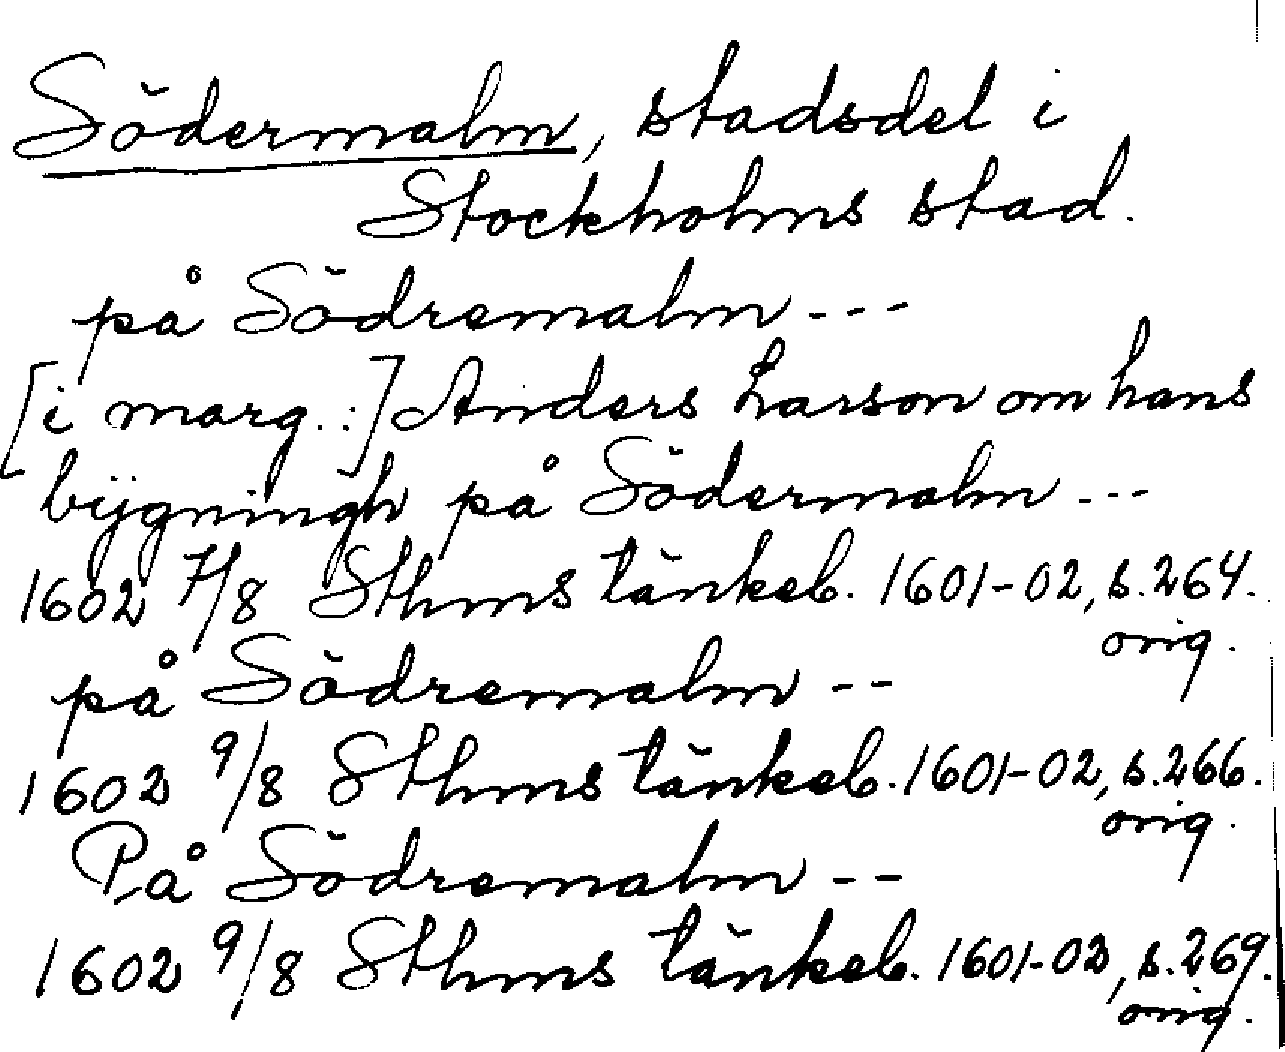 Södermalm, stadsdel i
Stockholms stad.
på Södremalm ---
[i marg..:] Anders Larson om hans
bÿgningh på Södermalm ---
1602 7/8 Sthms tänkeb. 1601-02, s.264.
orig.
på Södremalm --
1602 9/8 Sthms tänkeb. 1601-02, s.266.
orig.
På Södremalm --
1602 9/8 Sthms tänkeb. 1601-02, s.269.
orig.